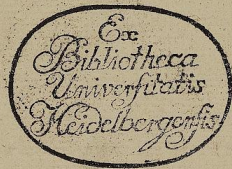 Ex
Bibliotheca
Univerſitatis
Heidelbergenſis